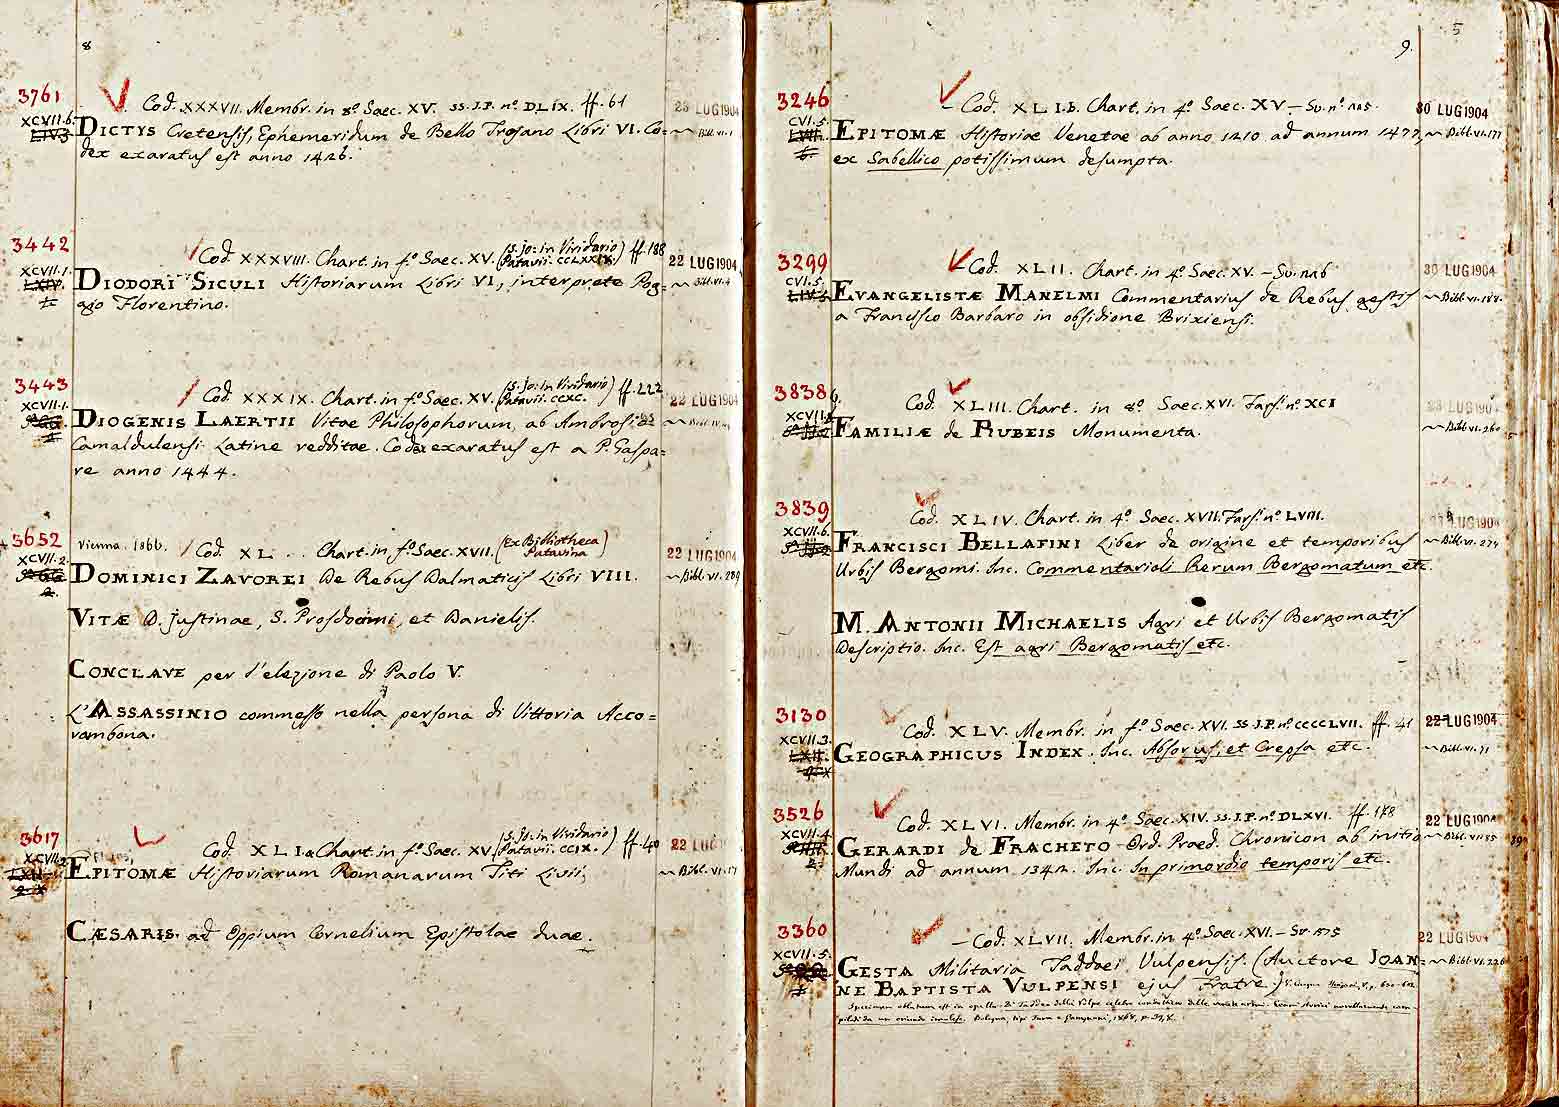 8
3761
Cod. XXXVII. Membr. in 8º. Saec. XV. SS. J. P. nº. DLIX. ff. 61
28 LUG 1904
XCVII.6.
DICTYS Cretensis, Ephemeridum de Bello Trojano Libri VI. Co=
Bibl. VI. 1
dex exaratus est anno 1426.
3442
Cod. XXXVIII. Chart. in fº. Saec. XV. (S. Jo: in Viridario Patavii. CCLXXIX.) ff. 188
22 LUG 1904
XCVII.1.
DIODORI SICULI Historiarum Libri VI, interprete Pog=
Bibl. VI. 4
gio Florentino.
3443
Cod. XXXIX. Chart. in fº. Saec. XV. (S. Jo: in Viridario Patavii. CCXC.) ff. 222
22 LUG 1904
XCVII.1.
DIOGENIS LAERTII Vitae Philosophorum, ab Ambrosio
Camaldulensi Latine redditae. Codex exaratus est a P. Gaspa=
re anno 1444.
3652
Vienna. 1866.
Cod. XL. Chart. in fº. Saec. XVII. (Ex Bibliotheca Patavina)
22 LUG 1904
XCVII.2.
DOMINICI ZAVOREI De Rebus Dalmaticis Libri VIII.
Bibl. VI. 289
VITÆ D. Justinae, S. Prosdocimi, et Danielis.
CONCLAVE per l'elezione di Paolo V.
L'ASSASSINIO commesso nella persona di Vittoria Acco=
rambona.
3617
Cod. XLI.a Chart. in fº. Saec. XV. (S. Jo: in Viridario Patavii. CCIX.) ff. 40
22 LUG
XCVII.2
EPITOMÆ Historiarum Romanarum Titi Livii;
Bibl. VI. 17
CÆSARIS ad Oppium Cornelium Epistolae duae.
9.
5
3246
Cod. XLI.b. Chart. in 4º. Saec. XV. – Sv. nº
30 LUG 1904
CVI.5.
EPITOMÆ Historiae Venetae ab anno 1210 ad annum 1477,
Bibl. VI. 177
ex Sabellico potissimum desumpta.
3299
Cod. XLII. Chart. in 4º. Saec. XV. – Sv.
30 LUG 1904
CVI.5.
EVANGELISTÆ MANELMI Commentarius de Rebus gestis
Bibl. VI. 188.
a Francisco Barbaro in obsidione Brixiensi.
3838
Cod. XLIII. Chart. in 8º. Saec. XVI. Fars. nº. XCI
28 LUG 1904
FAMILIÆ de RUBEIS Monumenta.
Bibl. VI. 260
3839
Cod. XLIV. Chart. in 4º. Saec. XVII. Fars. nº. LVIII.
LUG 1904
XCVII.6.
FRANCISCI BELLAFINI Liber de origine et temporibus
Bibl. VI. 274
Urbis Bergomi. Inc. Commentarioli Rerum Bergomatum etc.
M. ANTONII MICHAELIS Agri et Urbis Bergomatis
Descriptio. Inc. Est agri Bergomatis etc.
3130
Cod. XLV. Membr. in fº. Saec. XVI. SS. J. P. nº. CCCCLVII. ff. 41
22 LUG 1904
XCVII.3.
GEOGRAPHICUS INDEX. Inc. Absorus, et Crepsa etc.
Bibl. VI. 71
3526
Cod. XLVI. Membr. in 4º. Saec. XIV. SS. J. P. nº. DLXVI. ff. 178
22 LUG 1904
XCVII.4
GERARDI de FRACHETO Ord. Praed. Chronicon ab initio
Bibl. VI. 55
Mundi ad annum 1342. Inc. In primordio temporis etc.
3360
Cod. XLVII. Membr. in 4º. Saec. XVI. – Sv.
22 LUG 1904
XCVII.5.
GESTA Militaria Taddaei Vulpensis. (Auctore JOAN=
Bibl. VI. 226
NE BAPTISTA VULPENSI ejus Fratre)